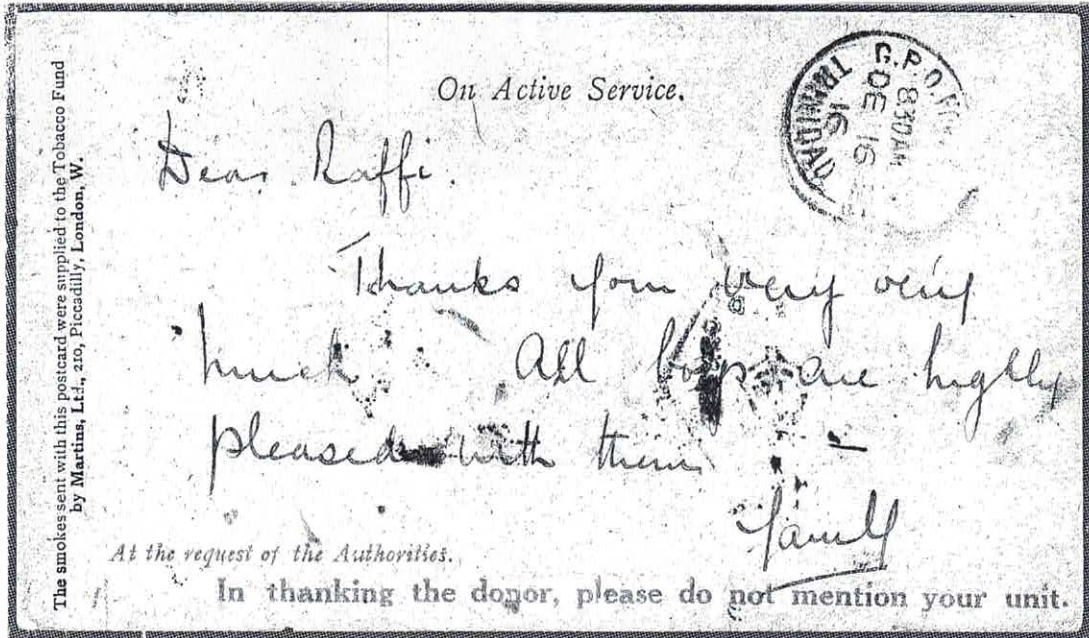 The smokes sent with this postcard were supplied to the Tobacco Fund
by Martins, Ltd., 210, Piccadilly, London, W.
On Active Service.
G.P.O.
8.30AM
DE 16
16
TRINIDAD
Dear Raffi.
Thanks you very very
much. All boys are highly
pleased with them –
At the request of the Authorities.
In thanking the donor, please do not mention your unit.